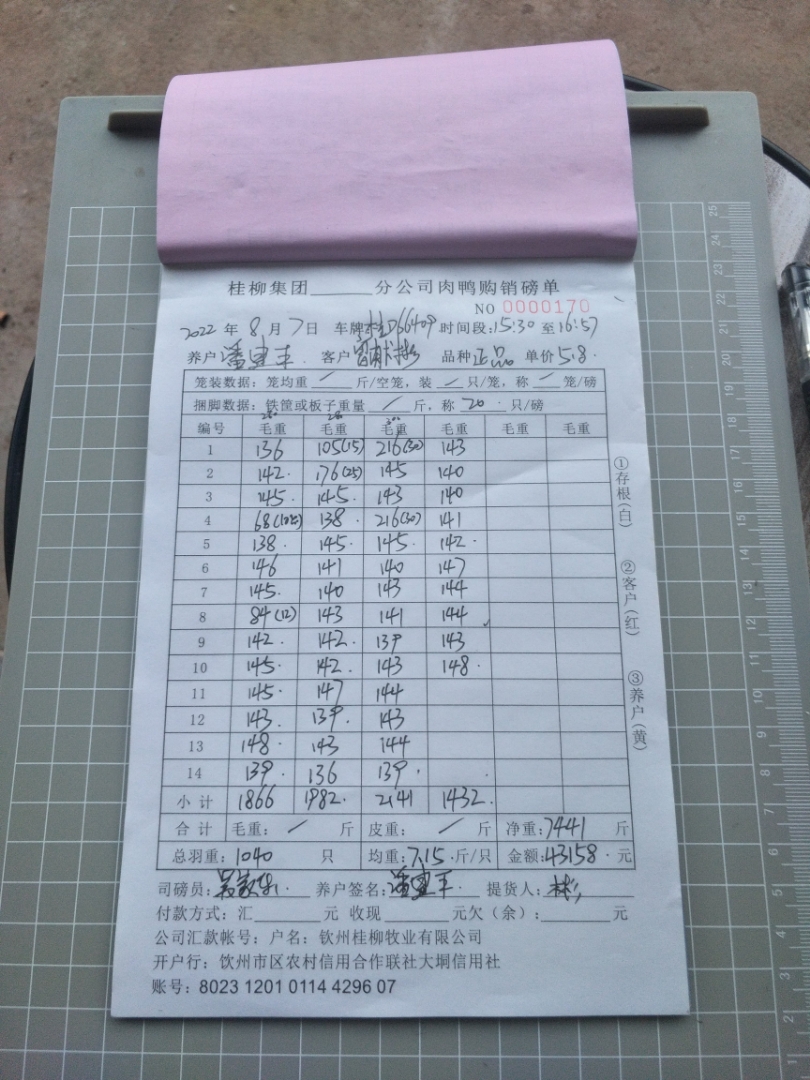 桂柳集团______分公司肉鸭购销磅单
NO 0000170
2022 年 8 月 7 日 车牌:桂D66409 时间段:15:30 至16:57
养户 潘 客户 品种 正品 单价 5.8.
笼装数据: 笼均重 / 斤/空笼, 装 / 只/笼, 称 / 笼/磅
捆脚数据: 铁筐或板子重量 / 斤, 称 20 只/磅
编号 毛重 毛重 毛重 毛重 毛重 毛重
1 136 105(15) 216(30) 143
2 142. 176(25) 145 140
3 145. 145. 143 140
4 68( 138. 216(30) 141
5 138. 145. 145. 142.
6 146 141 140 147
7 145. 140 143 144
8 84(12) 143 141 144
9 142. 142. 139 143
10 145. 142. 143 148.
11 145. 147 144
12 143. 139. 143
13 148. 143 144
14 139. 136 139.
小计 1866 1982. 2141 1432.
合计 毛重: / 斤 皮重: / 斤 净重:7441 斤
总羽重: 1040 只 均重:7.15.斤/只 金额:43158.元
司磅员: 养户签名:潘 提货人: 彬
付款方式: 汇______元 收现______元欠(余):______元
公司汇款帐号: 户名: 钦州桂柳牧业有限公司
开户行: 钦州市区农村信用合作联社大垌信用社
账号: 8023 1201 0114 4296 07
①存根(白)
②客户(红)
③养户(黄)
25
24
23
22
21
20
19
18
17
16
15
14
13
12
11
10
9
8
7
6
5
4
3
2
1